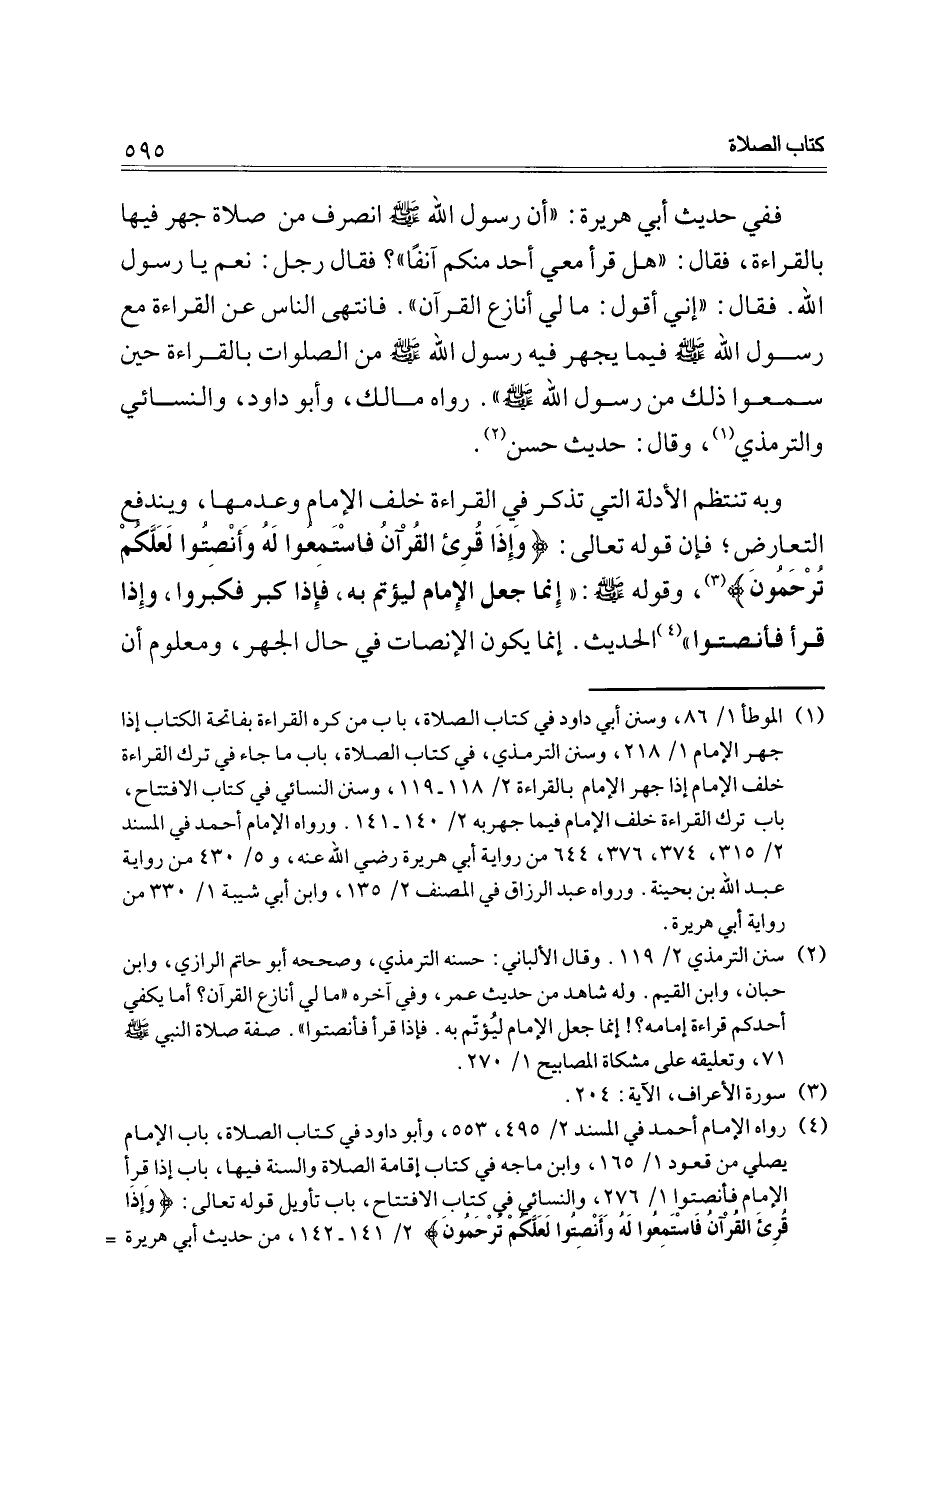 كتاب الصلاة ٥٩٥
ففي حديث أبي هريرة: «أن رسول الله ﷺ انصرف من صلاة جهر فيها
بالقراءة، فقال: «هل قرأ معي أحد منكم آنفًا»؟ فقال رجل: نعم يا رسول
الله. فقال: «إني أقول: ما لي أنازع القرآن». فانتهى الناس عن القراءة مع
رسول الله ﷺ فيما يجهر فيه رسول الله ﷺ من الصلوات بالقراءة حين
سمعوا ذلك من رسول الله ﷺ». رواه مالك، وأبو داود، والنسائي
والترمذي(١)، وقال: حديث حسن(٢).
وبه تنتظم الأدلة التي تذكر في القراءة خلف الإمام وعدمها، ويندفع
التعارض؛ فإن قوله تعالى: ﴿وَإِذَا قُرِئَ القُرْآنُ فَاسْتَمِعُوا لَهُ وَأَنْصِتُوا لَعَلَّكُمْ
تُرْحَمُونَ﴾(٣)، وقوله ﷺ: «إنما جعل الإمام ليؤتم به، فإذا كبر فكبروا، وإذا
قرأ فأنصتوا»(٤) الحديث. إنما يكون الإنصات في حال الجهر، ومعلوم أن
(١) الموطأ ١/ ٨٦، وسنن أبي داود في كتاب الصلاة، باب من كره القراءة بفاتحة الكتاب إذا
جهر الإمام ١/ ٢١٨، وسنن الترمذي، في كتاب الصلاة، باب ما جاء في ترك القراءة
خلف الإمام إذا جهر الإمام بالقراءة ٢/ ١١٨-١١٩، وسنن النسائي في كتاب الافتتاح،
باب ترك القراءة خلف الإمام فيما جهر به ٢/ ١٤٠-١٤١. ورواه الإمام أحمد في المسند
٢/ ٣١٥، ٣٧٤، ٣٧٦، ٦٤٤ من رواية أبي هريرة رضي الله عنه، و ٥/ ٤٣٠ من رواية
عبد الله بن بحينة. ورواه عبد الرزاق في المصنف ٢/ ١٣٥، وابن أبي شيبة ١/ ٣٣٠ من
رواية أبي هريرة.
(٢) سنن الترمذي ٢/ ١١٩. وقال الألباني: حسنه الترمذي، وصححه أبو حاتم الرازي، وابن
حبان، وابن القيم. وله شاهد من حديث عمر، وفي آخره «ما لي أنازع القرآن؟ أما يكفي
أحدكم قراءة إمامه؟! إنما جعل الإمام ليُؤتّم به. فإذا قرأ فأنصتوا». صفة صلاة النبي ﷺ
٧١، وتعليقه على مشكاة المصابيح ١/ ٢٧٠.
(٣) سورة الأعراف، الآية: ٢٠٤.
(٤) رواه الإمام أحمد في المسند ٢/ ٤٩٥، ٥٥٣، وأبو داود في كتاب الصلاة، باب الإمام
يصلي من قعود ١/ ١٦٥، وابن ماجه في كتاب إقامة الصلاة والسنة فيها، باب إذا قرأ
الإمام فأنصتوا ١/ ٢٧٦، والنسائي في كتاب الافتتاح، باب تأويل قوله تعالى: ﴿وَإِذَا
قُرِئَ القُرْآنُ فَاسْتَمِعُوا لَهُ وَأَنْصِتُوا لَعَلَّكُمْ تُرْحَمُونَ﴾ ٢/ ١٤١-١٤٢، من حديث أبي هريرة =